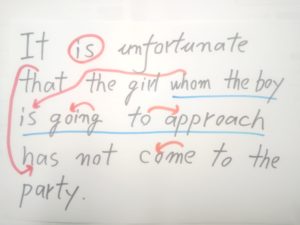 It is unfortunate
that the girl whom the boy
is going to approach
has not come to the
party.